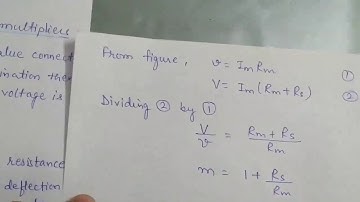 multipliers
alue connect
ination the
voltage is
resistance
deflection
From figure, v = Im Rm ①
V = Im (Rm + Rs) ②
Dividing ② by ①
V/v = Rm + Rs / Rm
m = 1 + Rs/Rm